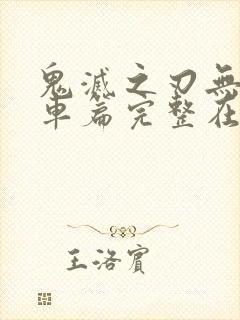 鬼滅之刃無
車篇完整在
王洛賓